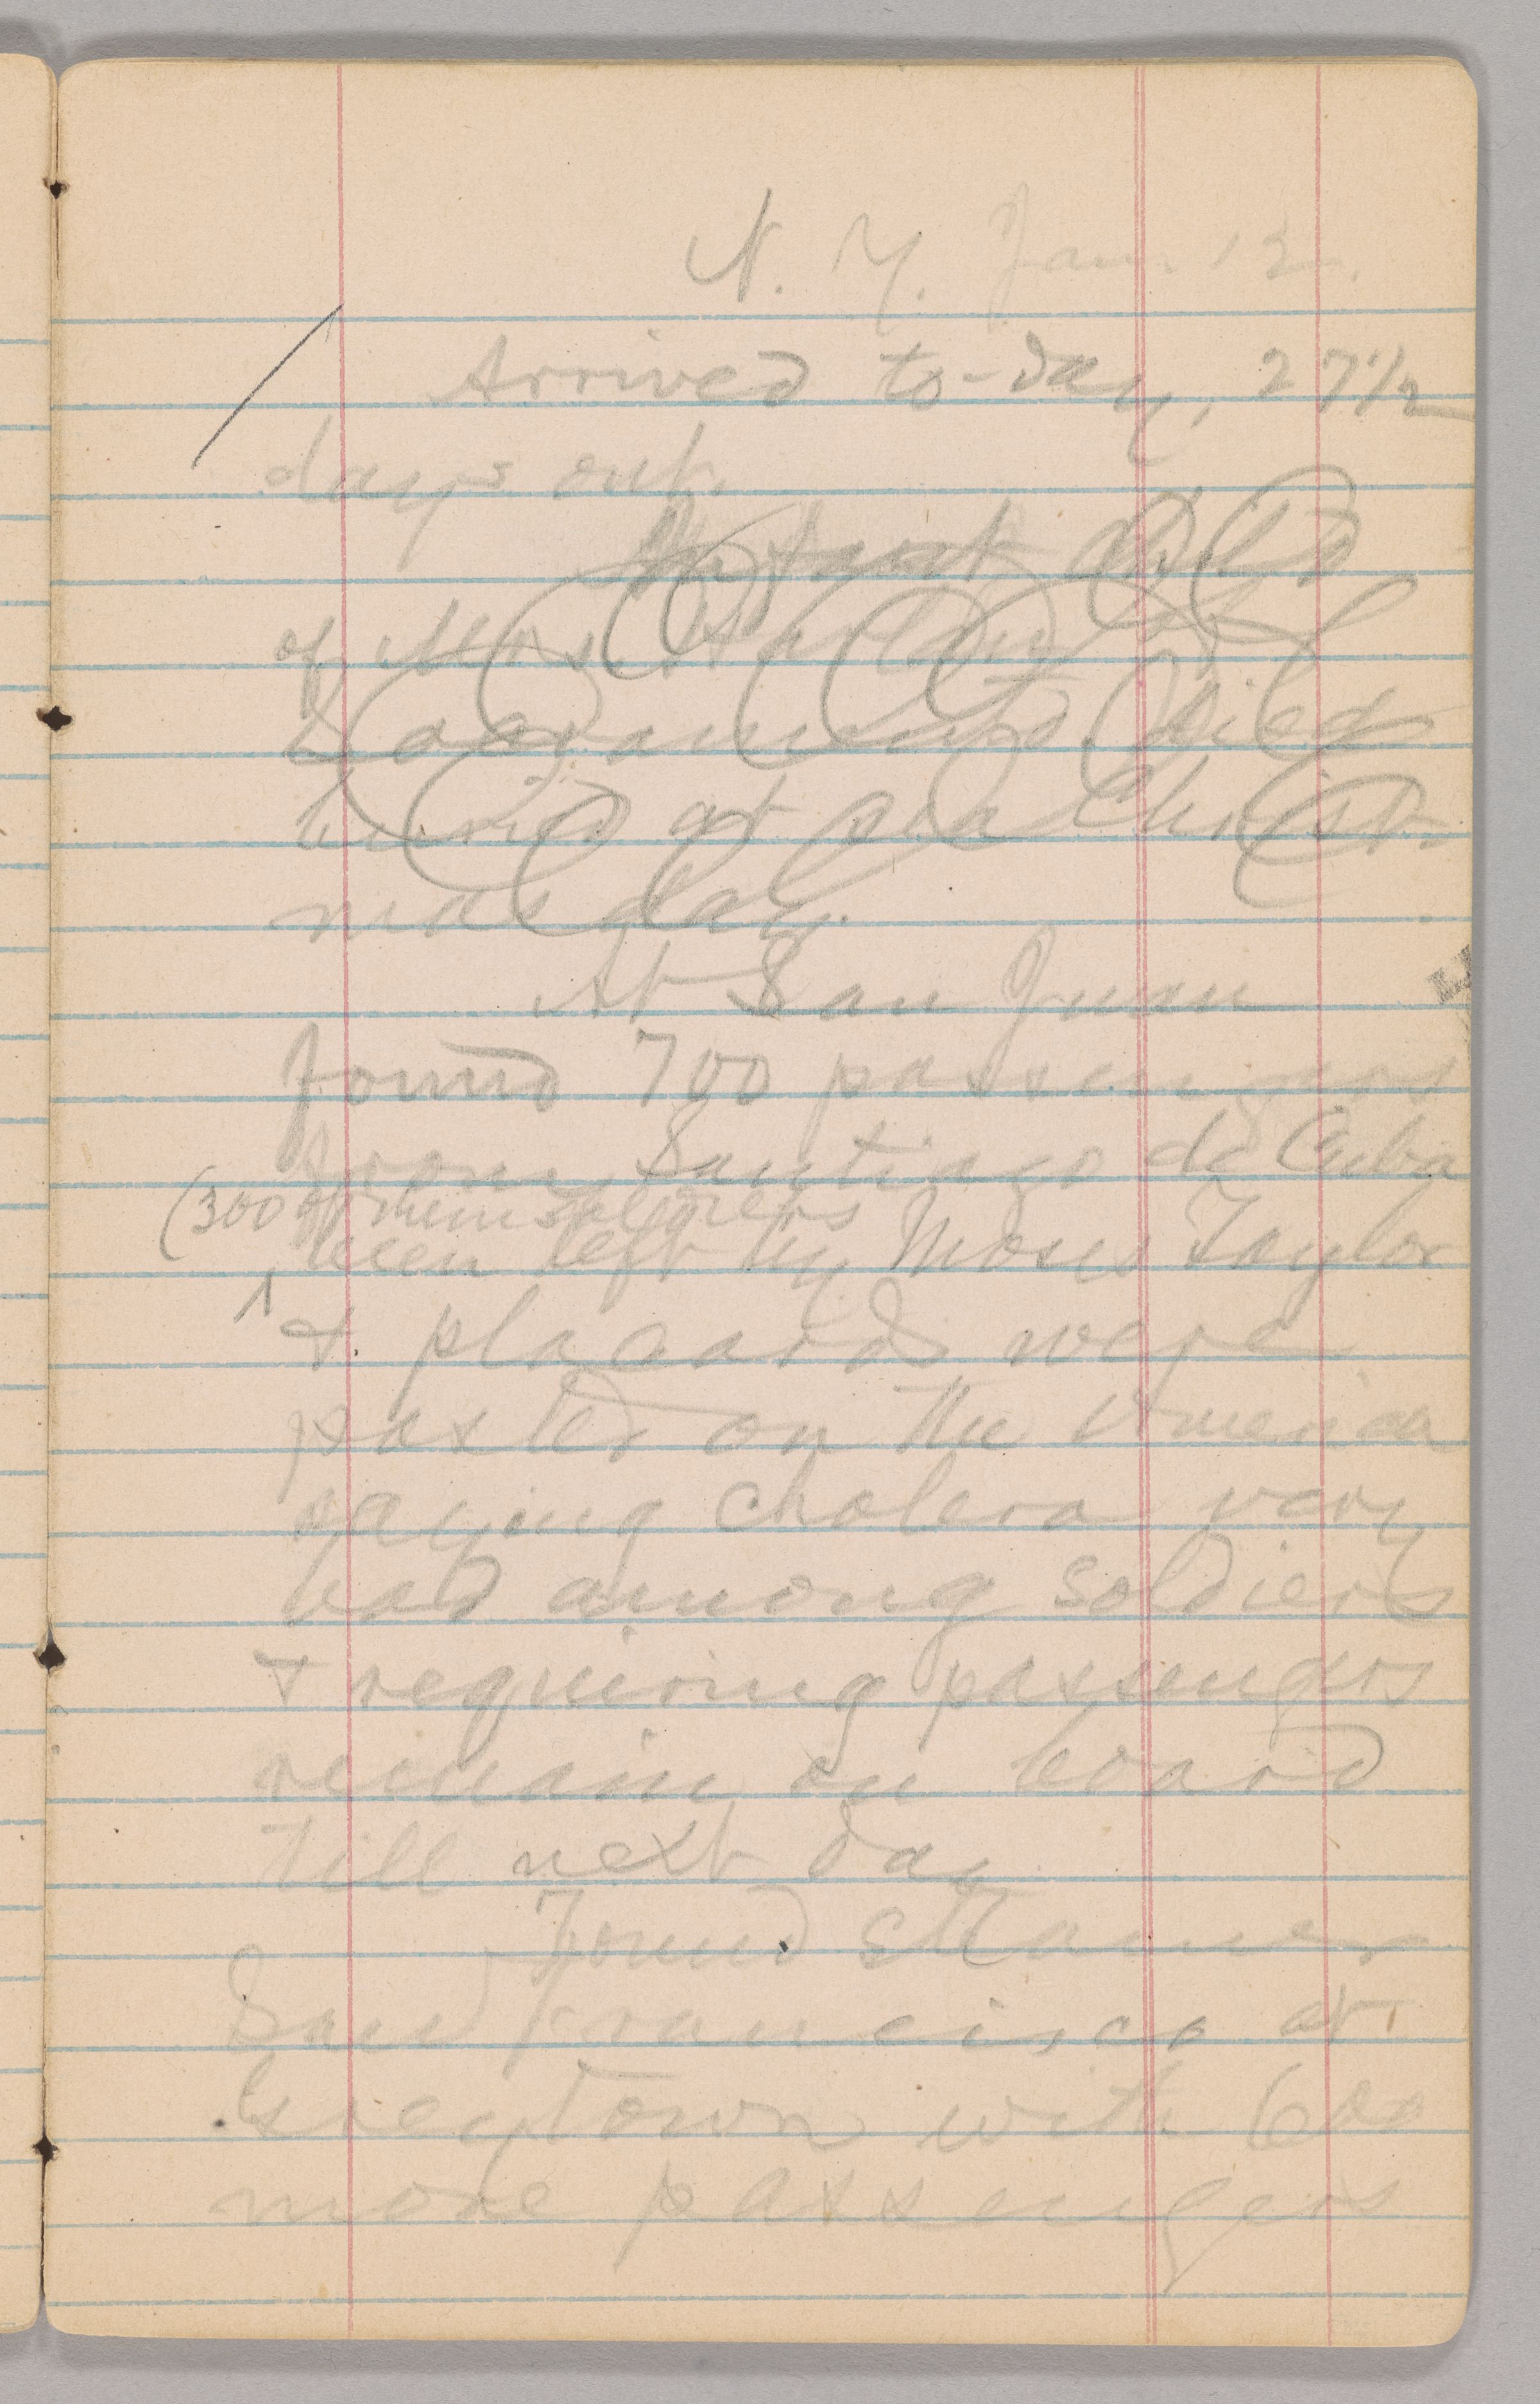 N. Y. Jan. 12.
Arrived to-day, 27 1/2
days out.
Infant child
of Mrs. Harlan, of
Sacramento, died
buried at sea Christ-
mas day.
At San Juan
found 700 passengers
from Santiago de Cuba
(300 of them soldiers
been left by Moses Taylor
& placards were
posted on the America
saying cholera very
bad among soldiers
& requiring passengers
remain on board
till next day
Found steamer
San Francisco at
Greytown with 600
more passengers